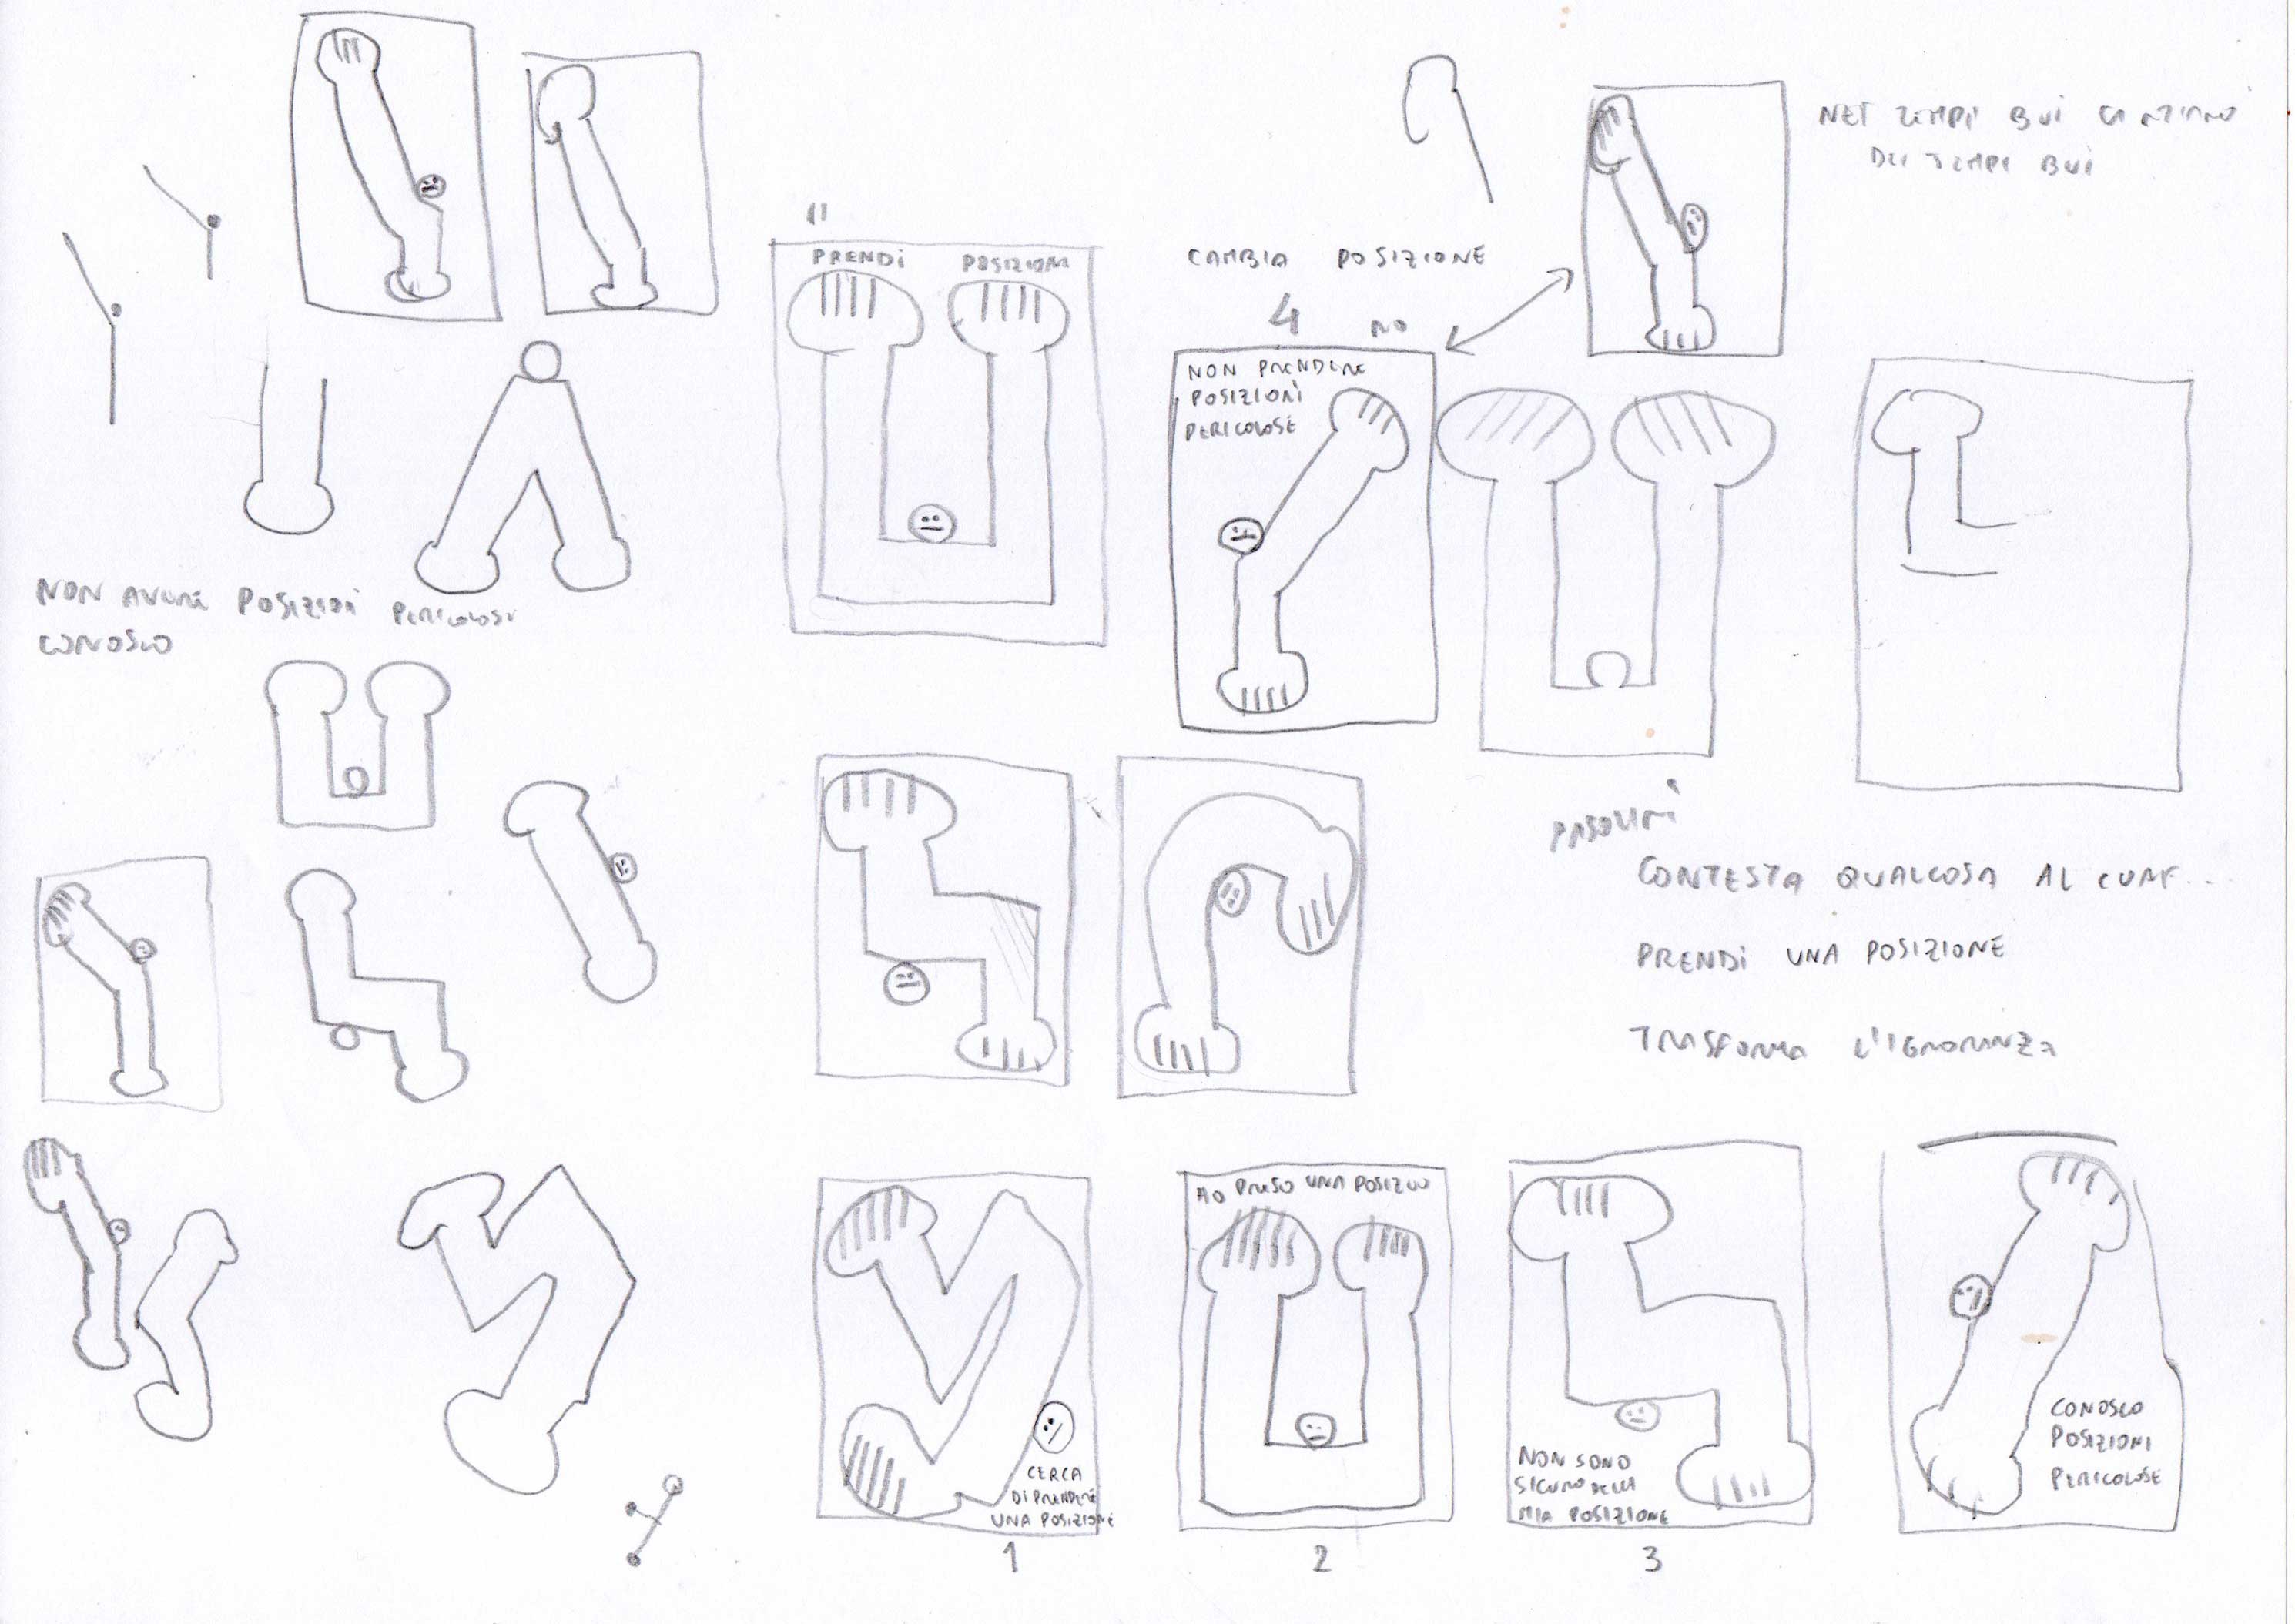 NEI TEMPI BUI
DEI TEMPI BUI
11
PRENDI POSIZIONI
CAMBIA POSIZIONE
4 NO
NON PRENDERE
POSIZIONI
PERICOLOSE
NON AVERE POSIZIONI PERICOLOSE
CONOSCO
PASOLINI
CONTESTA QUALCOSA AL
PRENDI UNA POSIZIONE
TRASFORMA L'IGNORANZA
CERCA
DI PRENDERE
UNA POSIZIONE
1
HO PRESO UNA
2
NON SONO
SICURO DELLA
MIA POSIZIONE
3
CONOSCO
POSIZIONI
PERICOLOSE